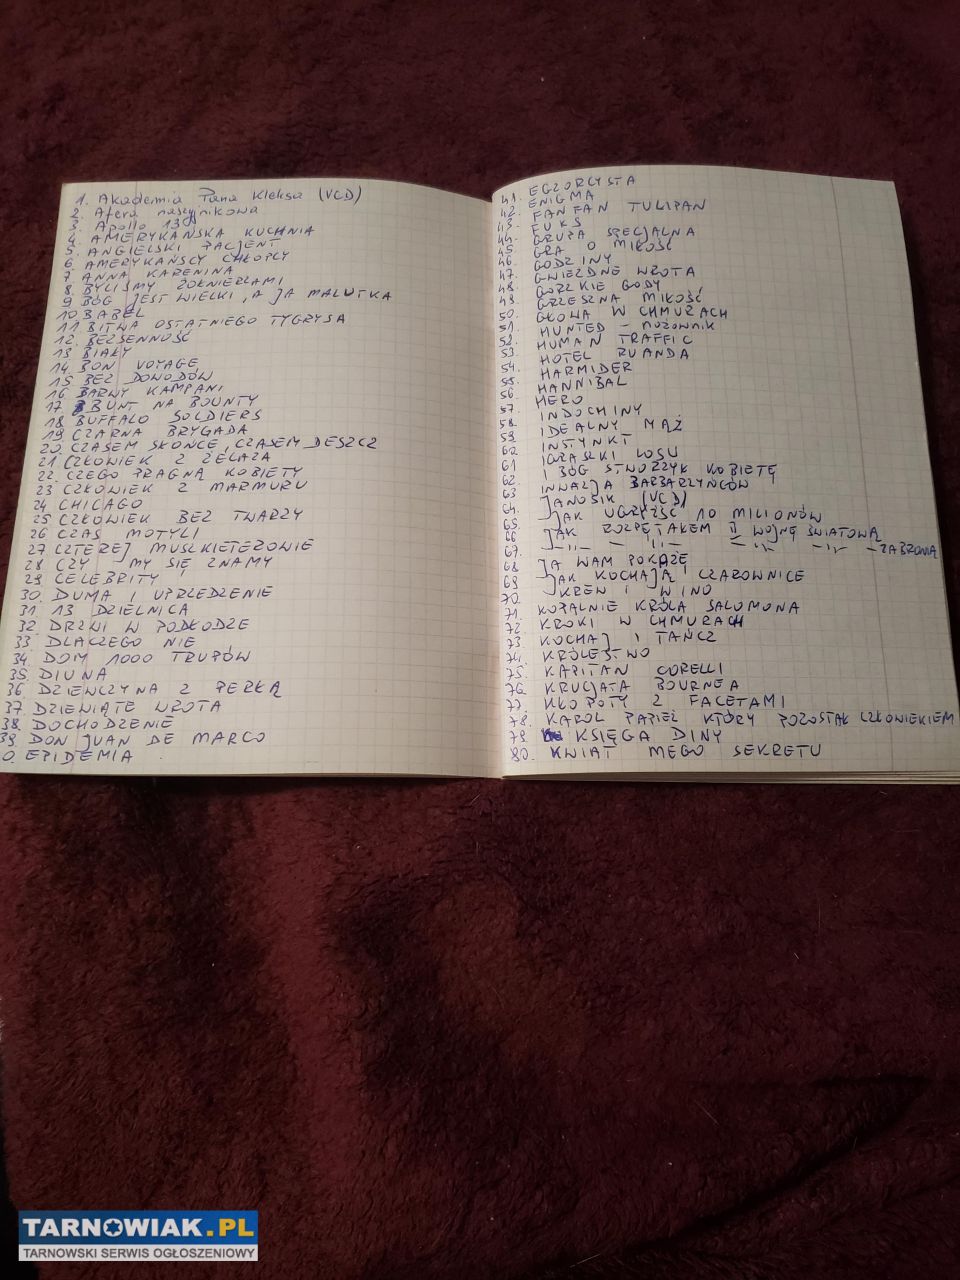 1. Akademia Pana Kleksa (VCD)
2. Afera naszyjnikowa
3. Apollo 13
4. AMERYKAŃSKA KUCHNIA
5. ANGIELSKI PACJENT
6. AMERYKAŃSCY CHŁOPCY
7. ANNA KARENINA
8. BYLIŚMY ŻOŁNIERZAMI
9 BÓG JEST WIELKI, A JA MALUTKA
10 BABEL
11. BITWA OSTATNIEGO TYGRYSA
12. BEZSENNOŚĆ
13 BIAŁY
14. BON VOYAGE
15. BEZ DOWODÓW
16 BARWY KAMPANI
17 BUNT NA BOUNTY
18. BUFFALO SOLDIERS
19. CZARNA BRYGADA
20. CZASEM SŁOŃCE, CZASEM DESZCZ
21. CZŁOWIEK Z ŻELAZA
22. CZEGO PRAGNĄ KOBIETY
23 CZŁOWIEK Z MARMURU
24 CHICAGO
25 CZŁOWIEK BEZ TWARZY
26 CZAS MOTYLI
27 CZTEREJ MUSZKIETEROWIE
28 CZY MY SIĘ ZNAMY
29 CELEBRITY
30. DUMA I UPRZEDZENIE
31. 13 DZIELNICA
32 DRZWI W PODŁODZE
33. DLACZEGO NIE
34. DOM 1000 TRUPÓW
35. DIUNA
36 DZIEWCZYNA Z PERŁĄ
37. DZIEWIĄTE WROTA
38. DOCHODZENIE
39 DON JUAN DE MARCO
0. EPIDEMIA
41. EGZORCYSTA
42. ENIGMA
43. FANFAN TULIPAN
44. FUKS
45. GRUPA SPECJALNA
46. GRA O MIŁOŚĆ
47. GODZINY
48. GWIEZDNE WROTA
49. GORZKIE GODY
50. GRZESZNA MIŁOŚĆ
51. GŁOWA W CHMURACH
52. HUNTED - nożownik
53. HUMAN TRAFFIC
54. HOTEL RUANDA
55. HARMIDER
56. HANNIBAL
57. HERO
58. INDOCHINY
59. IDEALNY MĄŻ
60 INSTYNKT
61 IGRASZKI LOSU
62. I BÓG STWORZYŁ KOBIETĘ
63 INWAZJA BARBARZYŃCÓW
64. JANOSIK (VCD)
65. JAK UGRYŹĆ 10 MILIONÓW
66 JAK ROZPĘTAŁEM II WOJNĘ ŚWIATOWĄ
67. -"- - "- -"- -"- - ZA BRONIĄ
68 JA WAM POKAŻĘ
69 JAK KOCHAJĄ CZAROWNICE
70. KREW I WINO
71. KOPALNIE KRÓLA SALOMONA
72 KROKI W CHMURACH
73. KOCHAJ I TAŃCZ
74. KRÓLESTWO
75. KAPITAN CORELLI
76. KRUCJATA BOURNEA
77. KŁOPOTY Z FACETAMI
78. KAROL PAPIEŻ KTÓRY POZOSTAŁ CZŁOWIEKIEM
79 KSIĘGA DINY
80. KWIAT MEGO SEKRETU
TARNOWIAK.PL
TARNOWSKI SERWIS OGŁOSZENIOWY